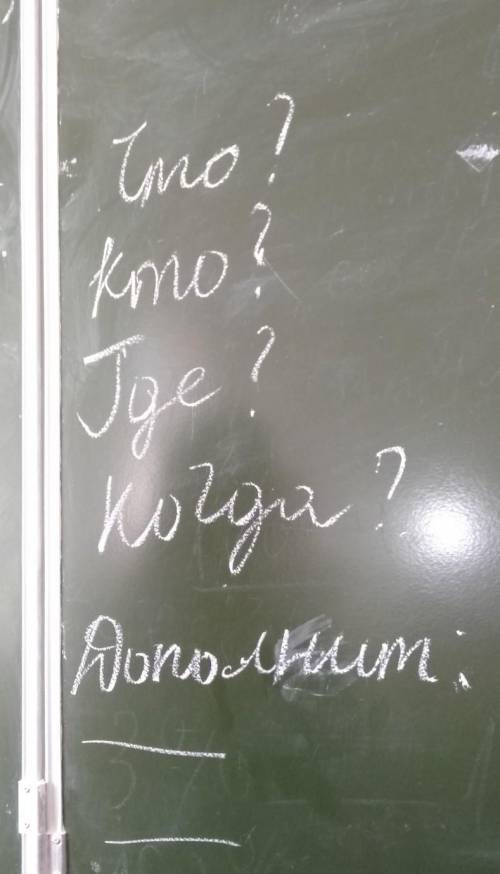 Что?
Кто?
Где?
Когда?
Дополнит: